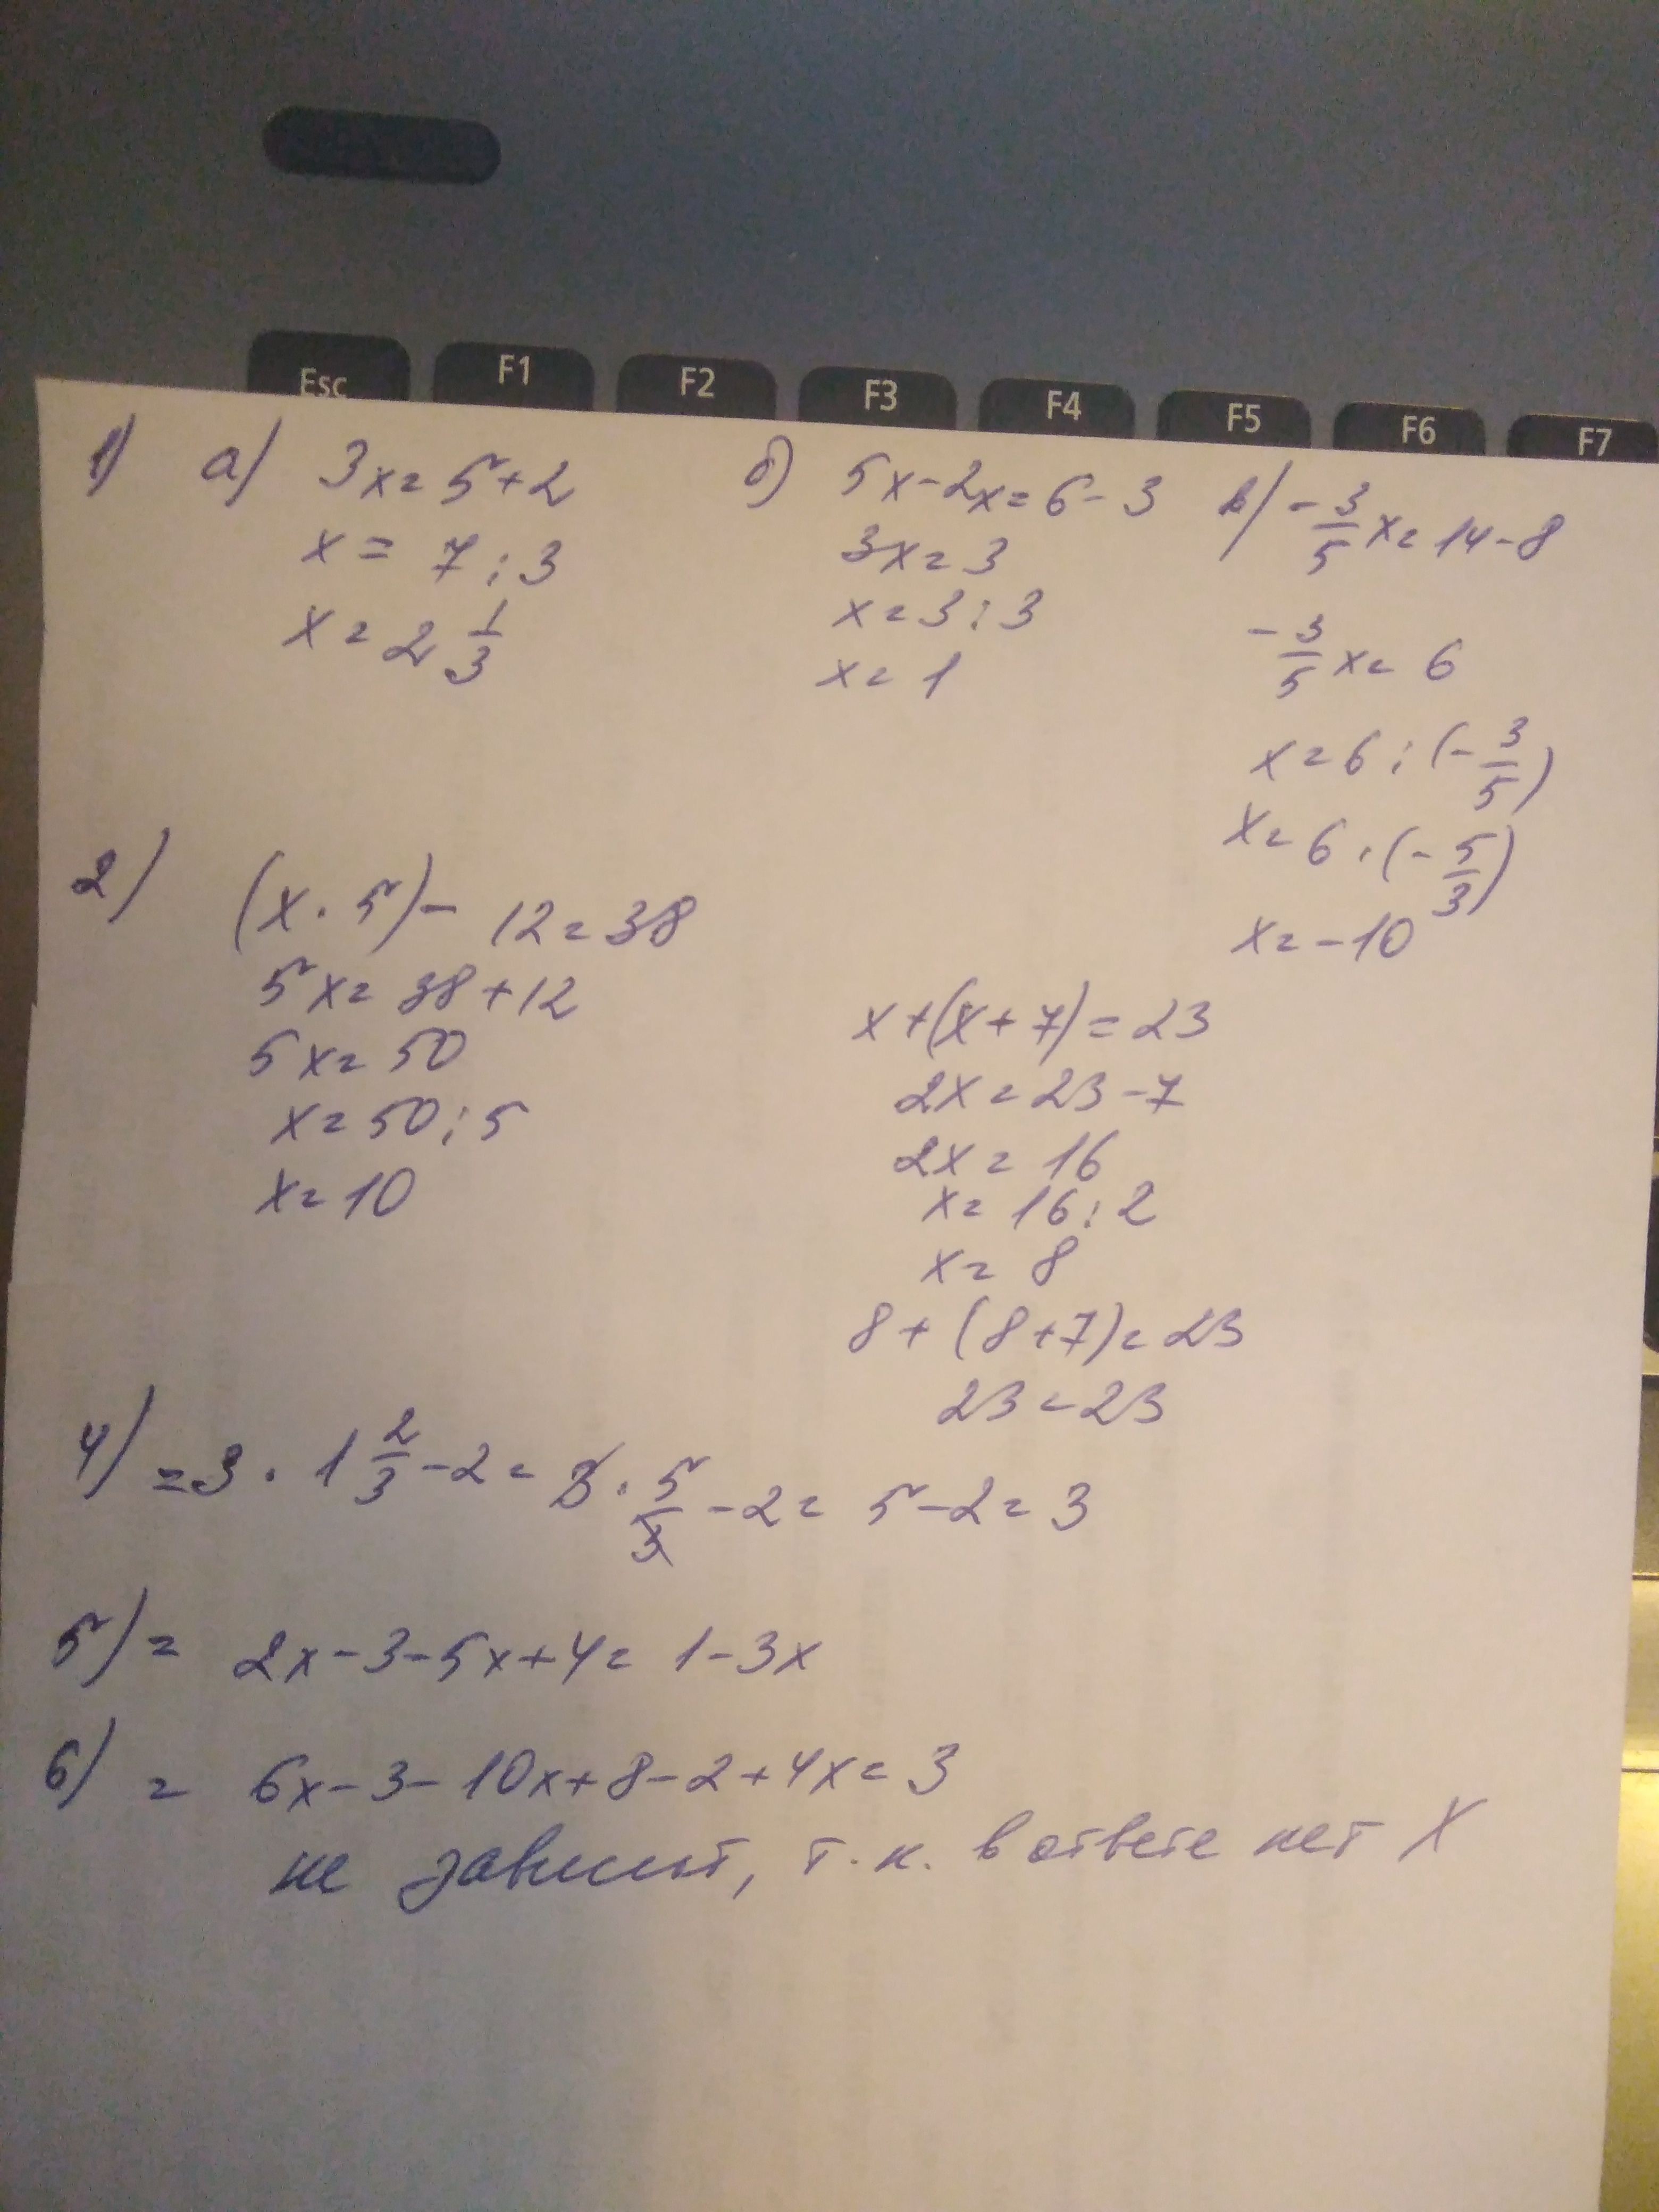 Esc F1 F2 F3 F4 F5 F6 F7
1) а) 3x = 5+2
x = 7 : 3
x = 2 1/3
б) 5x-2x = 6-3
3x = 3
x = 3 : 3
x = 1
в) -3/5 x = 14-8
-3/5 x = 6
x = 6 : (-3/5)
x = 6 · (-5/3)
x = -10
2) (x · 5) - 12 = 38
5x = 38+12
5x = 50
x = 50 : 5
x = 10
x+(x+7) = 23
2x = 23-7
2x = 16
x = 16 : 2
x = 8
8+(8+7) = 23
23 = 23
4) = 3 · 1 2/3 - 2 = 3 · 5/3 - 2 = 5-2 = 3
5) = 2x-3-5x+4 = 1-3x
6) = 6x-3-10x+8-2+4x = 3
не зависит, т.к. в ответе нет X